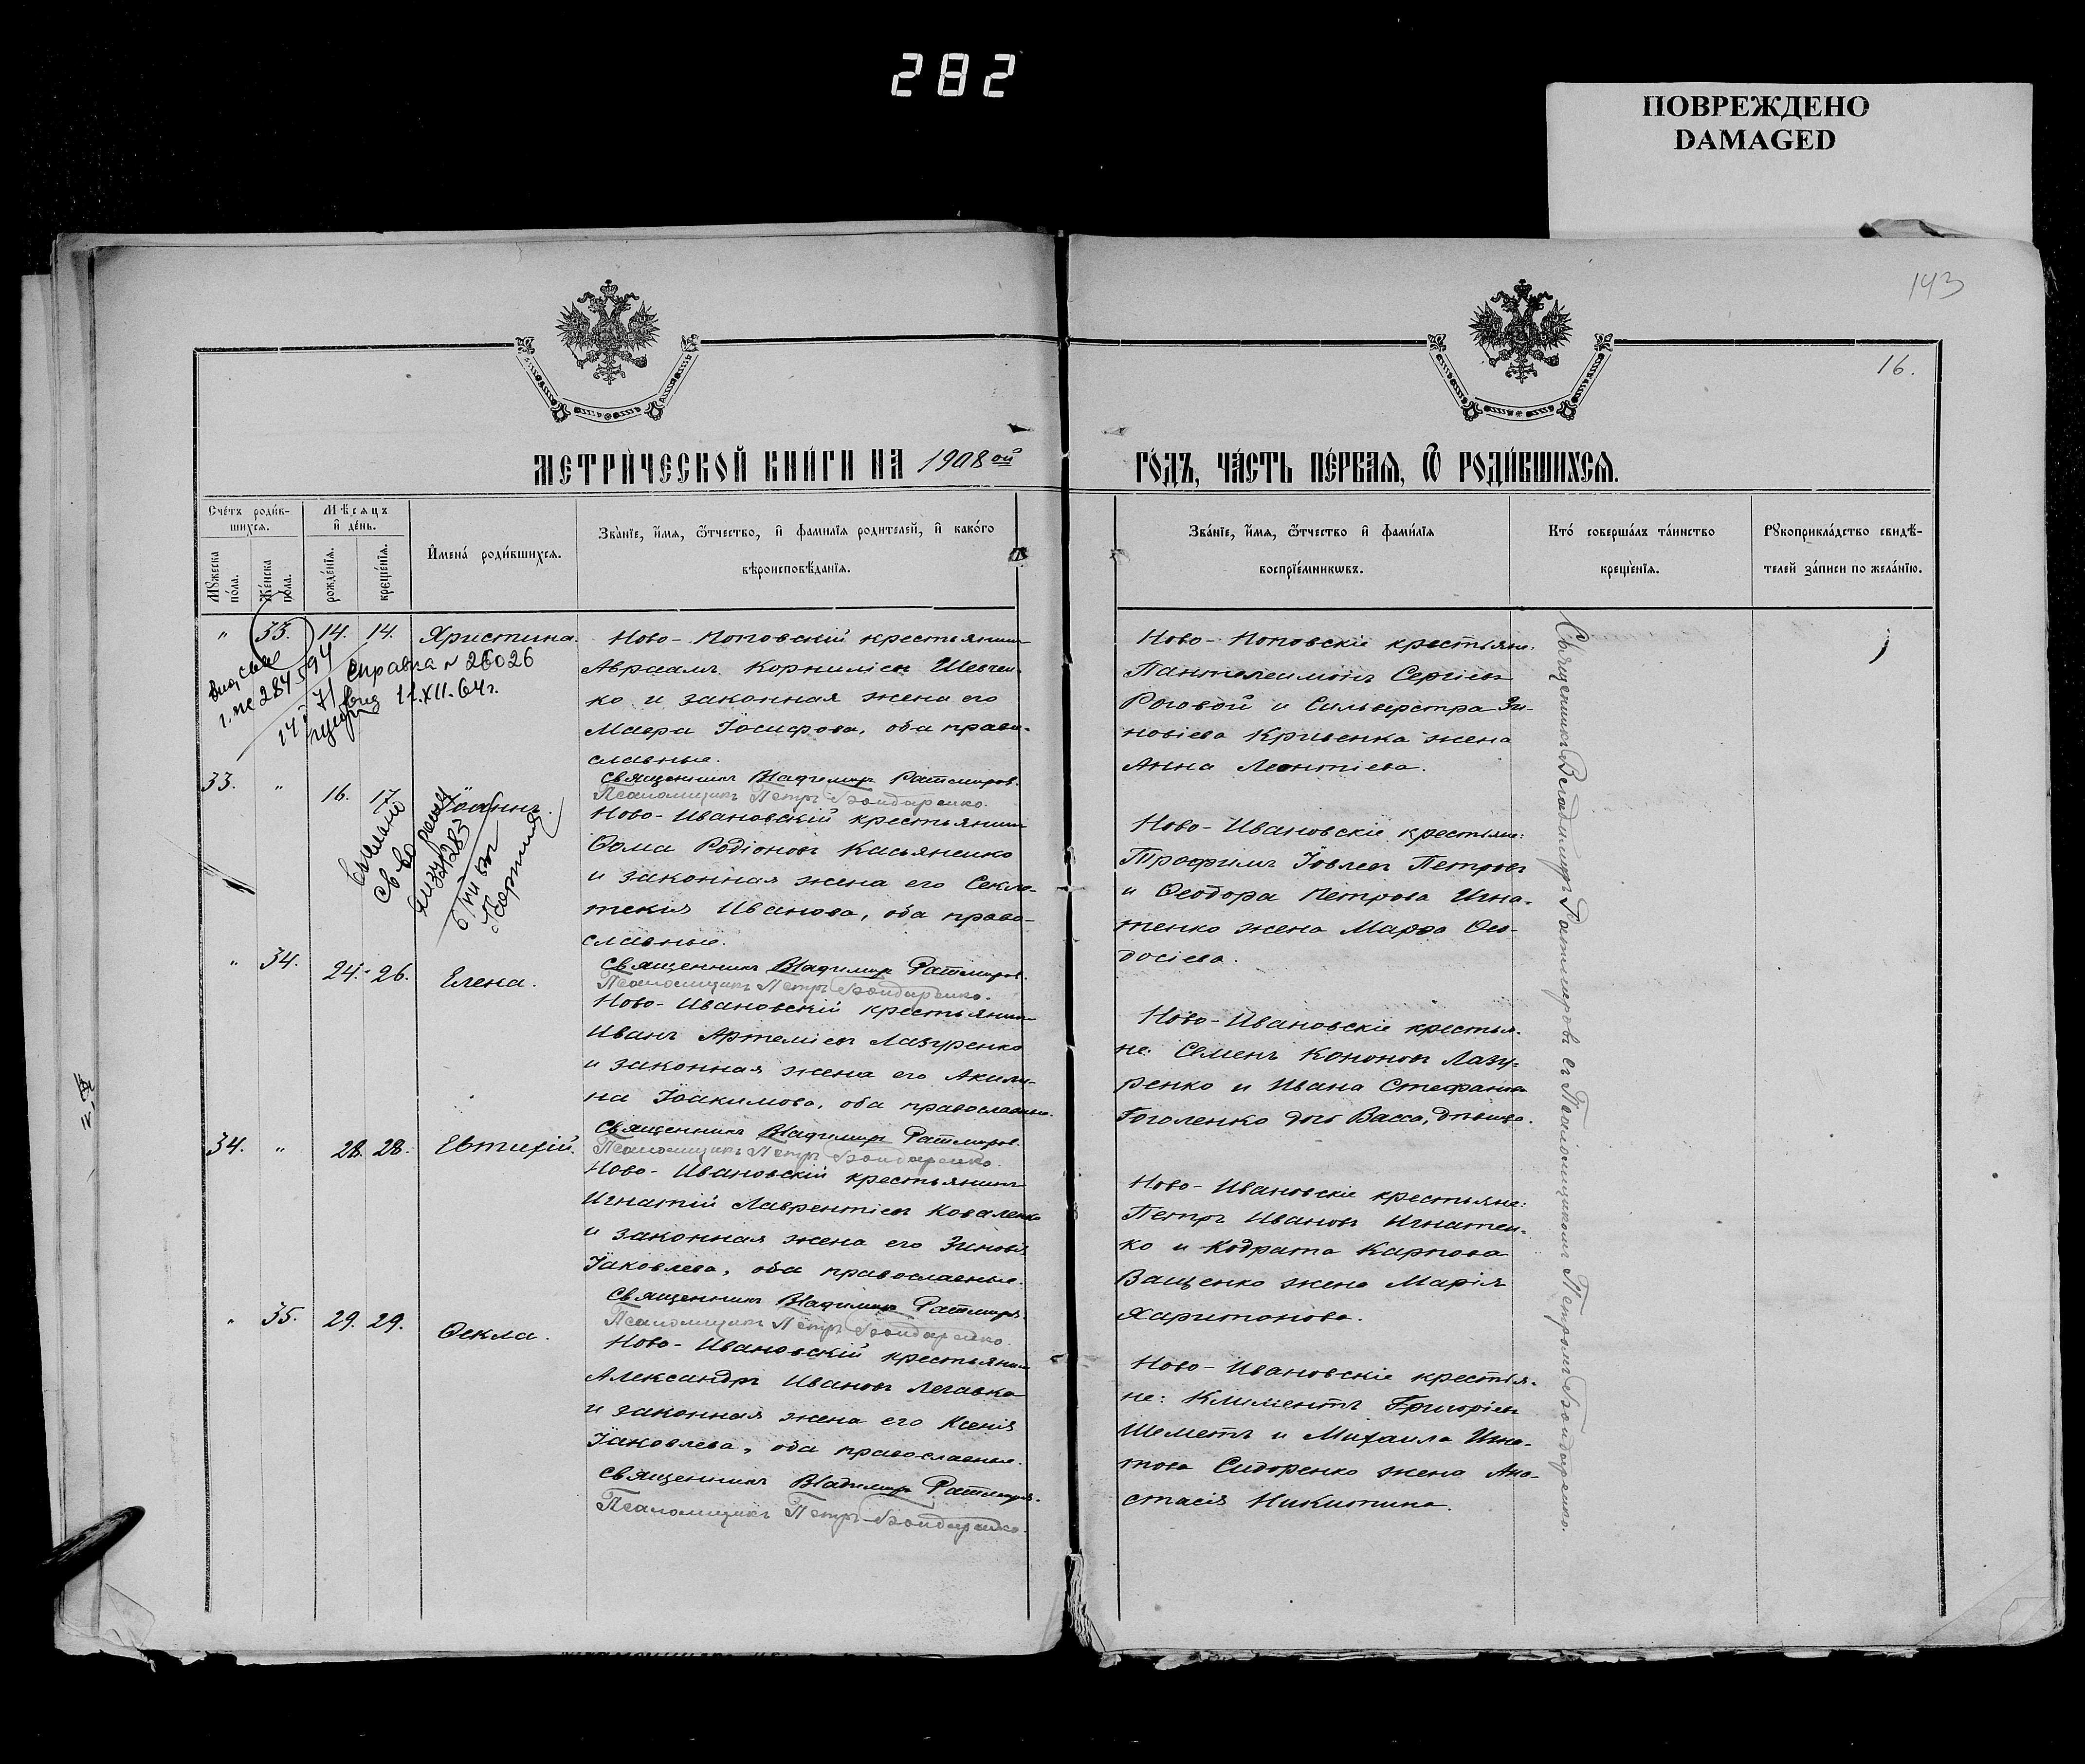 282
ПОВРЕЖДЕНО
DAMAGED
143
16.
МЕТРИ́ЧЕСКОЙ КНИ́ГИ НА 1908ой
ГО́ДЪ, ЧА́СТЬ ПЕ́РВАЯ, Ѿ РОДИ́ВШИХСЯ.
Сче́тъ роди́в-
шихся.
Мꙋжеска
по́ла.
Же́нска
по́ла.
Мѣсяцъ
и҆ де́нь.
рожде́нїя.
креще́нїя.
И҆мена̀ роди́вшихся.
Зва́нїе, и҆́мя, ѻ҆́тчество, и҆ фамилїя родителей, и҆ како́го
вѣроисповѣ́данїя.
Зва́нїе, и҆́мя, ѻ҆́тчество и҆ фами́лїя
воспрїе́мникѡвъ.
Кто́ соверша́лъ та́инство
креще́нїя.
Рꙋкоприкла́дство свидѣ́-
телей за́писи по жела́нїю.
" 35. 14. 14. Христина.
справка № 26026
11.XII.64г.
Ново-Поповскій крестьянинъ
Авраамъ Корниліевъ Шевчен-
ко и законная жена его
Мавра Іосифова, оба право-
славные.
Священникъ Владимиръ Ратмировъ.
Псаломщикъ Петръ Бондаренко.
Ново-Поповскіе крестьяне:
Пантелеимонъ Сергіевъ
Роговой и Сильверстра Зи-
новіева Кривенка жена
Анна Леонтіева.
33. " 16. 17. Іоаннъ.
Ново-Ивановскій крестьянинъ
Ѳома Родіоновъ Касьяненко
и законная жена его Секле-
текія Иванова, оба право-
славные.
Священникъ Владимиръ Ратмировъ.
Псаломщикъ Петръ Бондаренко.
Ново-Ивановскіе крестьяне:
Трофимъ Іовлевъ Петровъ
и Ѳеодора Петрова Игна-
тенко жена Марѳа Ѳео-
досіева.
" 34. 24. 26. Елена.
Ново-Ивановскій крестьянинъ
Иванъ Артеміевъ Лазуренко
и законная жена его Акили-
на Іоакимова, оба православные.
Священникъ Владимиръ Ратмировъ.
Псаломщикъ Петръ Бондаренко.
Ново-Ивановскіе крестья-
не: Семенъ Кононовъ Лазу-
ренко и Ивана Стефанова
Гоголенко дочь Васса, дѣвица.
34. " 28. 28. Евтихій.
Ново-Ивановскій крестьянинъ
Игнатій Лаврентіевъ Коваленко
и законная жена его Зиновія
Іаковлева, оба православные.
Священникъ Владимиръ Ратмировъ.
Псаломщикъ Петръ Бондаренко.
Ново-Ивановскіе крестьяне:
Петръ Ивановъ Игнатен-
ко и Кодрата Карпова
Ващенко жена Марія
Харитонова.
" 35. 29. 29. Ѳекла.
Ново-Ивановскій крестьянинъ
Александръ Ивановъ Легавка
и законная жена его Ксенія
Іаковлева, оба православные.
Священникъ Владимиръ Ратмировъ.
Псаломщикъ Петръ Бондаренко.
Ново-Ивановскіе крестья-
не: Климентъ Григоріевъ
Шеметъ и Михаила Игна-
това Сидоренко жена Ана-
стасія Никитина.
Священникъ Владимиръ Ратмировъ съ Псаломщикомъ Петромъ Бондаренко.